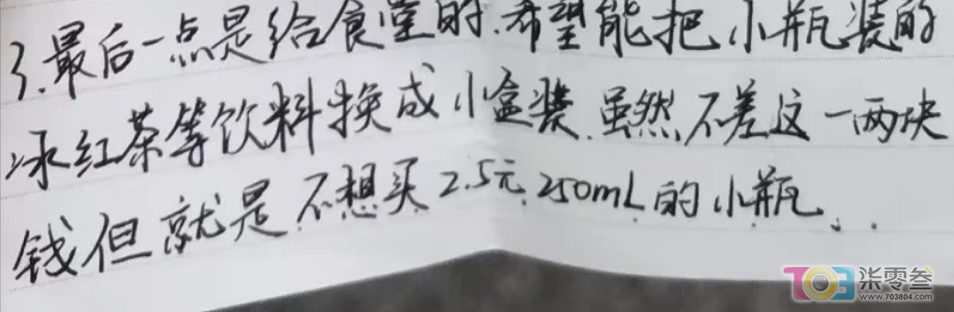 3.最后一点是给食堂的.希望能把小瓶装的
冰红茶等饮料换成小盒装.虽然不差这一两块
钱但就是不想买2.5元250mL的小瓶...
703 柒零叁
www.703804.com